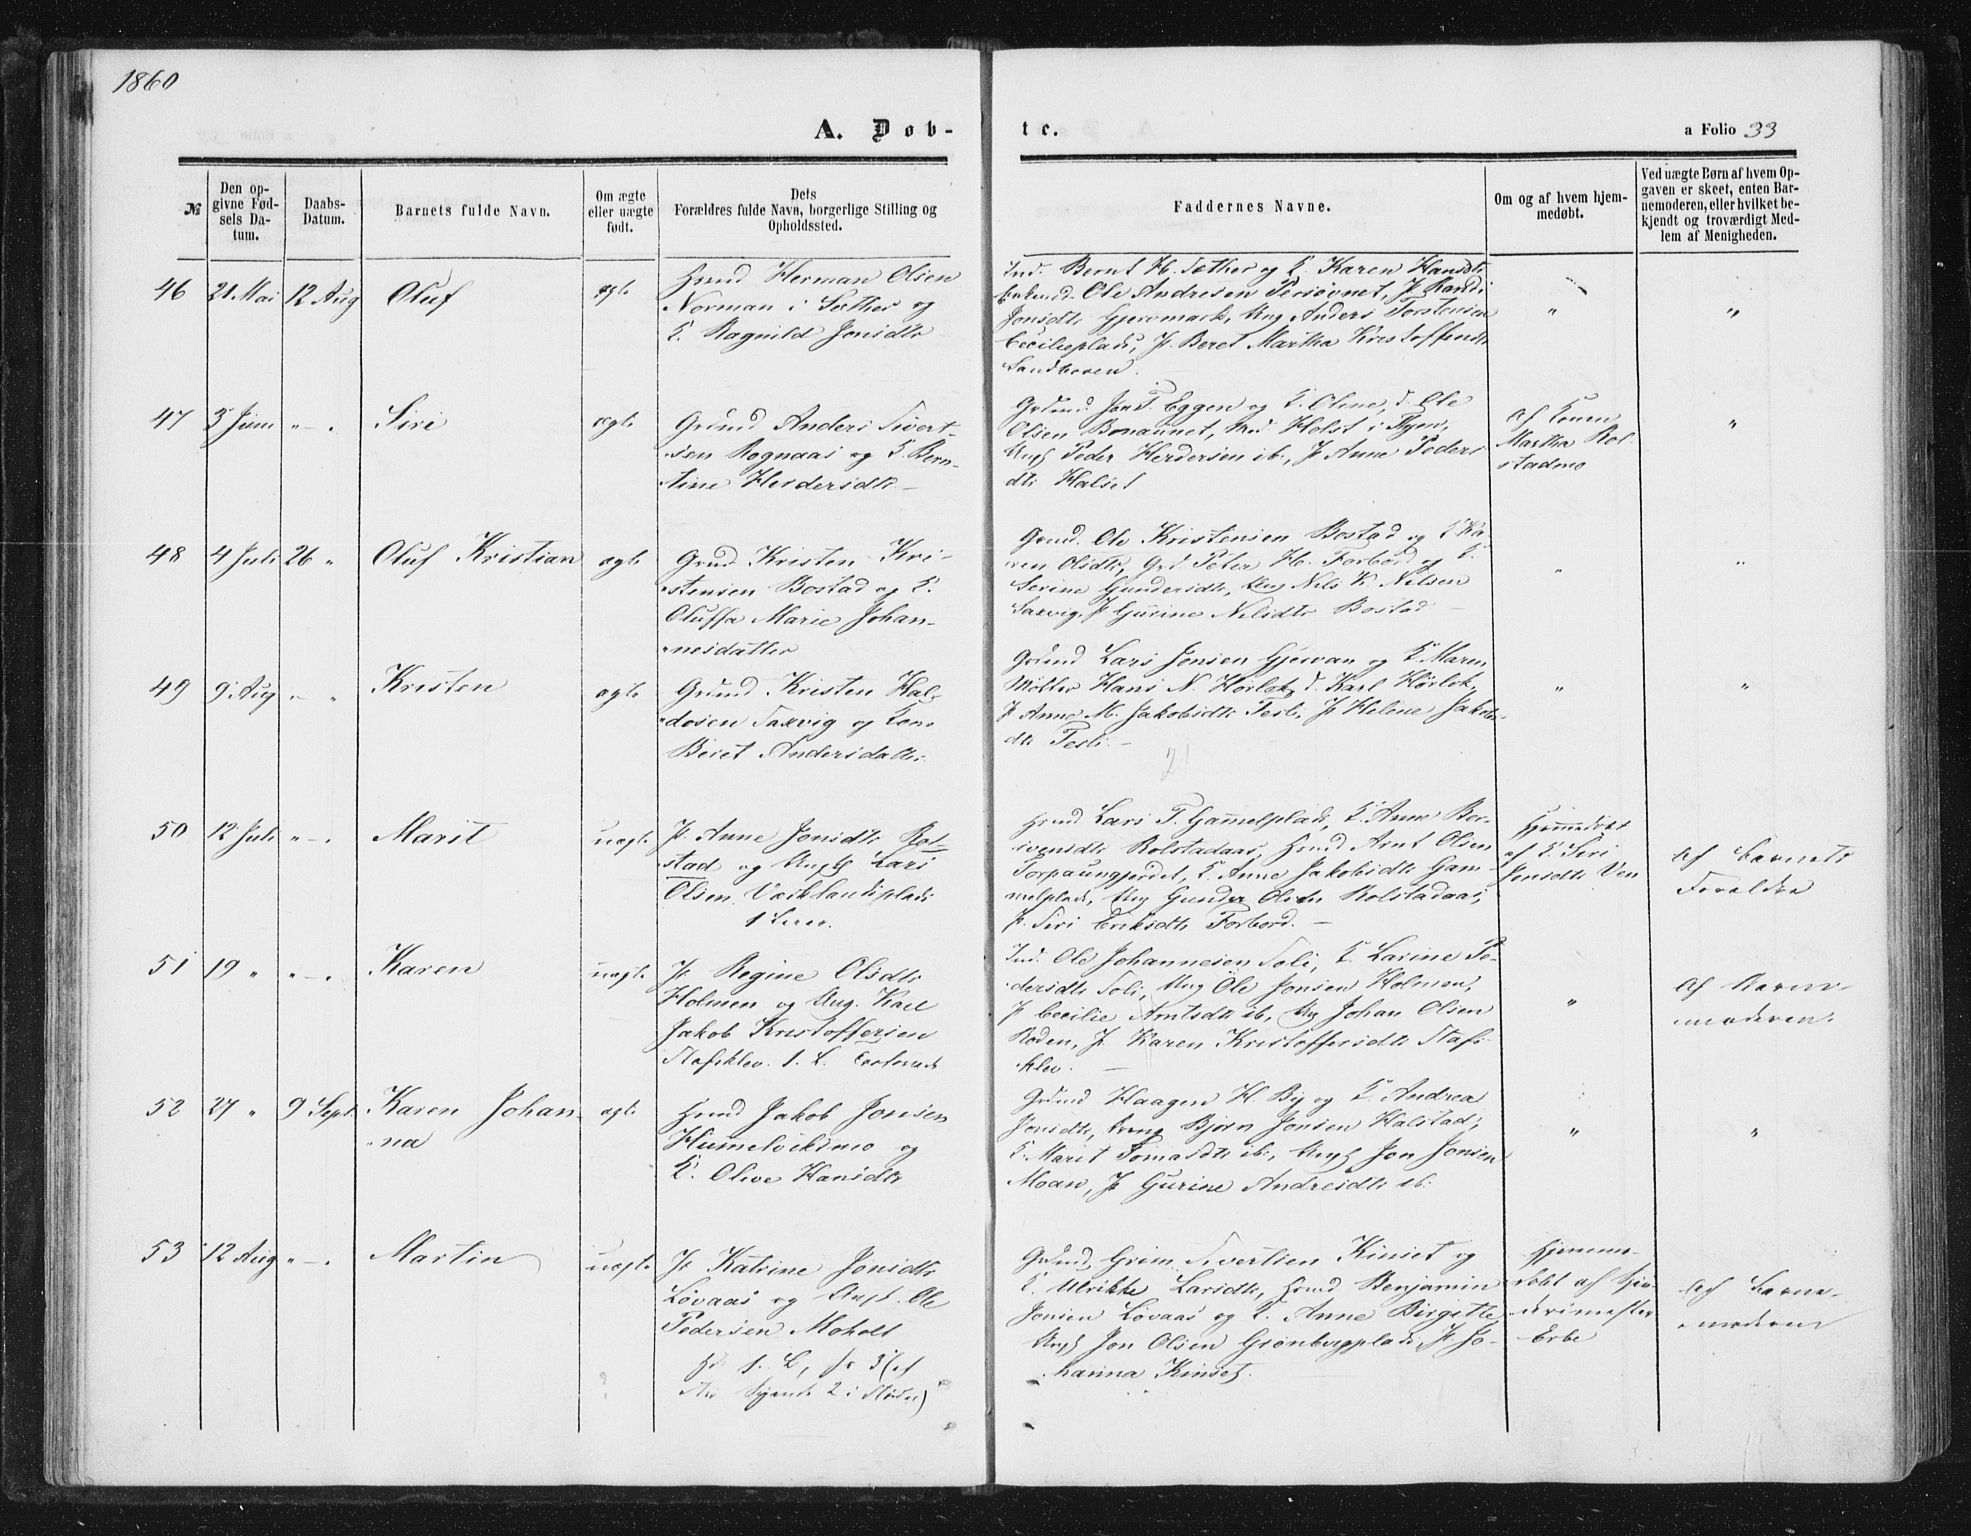 1860
A. Døb-
te.
a Folio 33
№
Den op-
givne Fød-
sels Da-
tum.
Daabs-
Datum.
Barnets fulde Navn.
Om ægte
eller uægte
født.
Dets
Forældres fulde Navn, borgerlige Stilling og
Opholdssted.
Faddernes Navne.
Om og af hvem hjem-
medøbt.
Ved uægte Børn af hvem Op-
gaven er skeet, enten Bar-
nemoderen, eller hvilket be-
kjendt og troværdigt Med-
lem af Menigheden.
46 21 Mai 12 Aug Oluf ægte
Hmd Herman Olsen
Norman i Sæther og
K. Ragnild Jonsdtr
Ind. Bernt H. Sæther og K. Karen Hansdtr
Ole Andresen Persövnet, P. Randi
Jonsdtr Gjervmark, Ung Anders Torstensen
Cecilieplads, P. Beret Martha Kristoffersdtr
Sandhoven.
"
"
47 3 Juni " - . Siri ægte
Grdmd Anders Sivert-
sen Rognaas og K. Bern-
tine Herdersdtr
Grdmd. Jon T. Eggen og K. Oline, d. Ole
Olsen Bonaunet, Holst i
Ungk Peder Herdersen ib., P. Anne Peders
dtr Halset
af Konen
Martha Rol-
stadmo
"
48 4 Juli 26 " Oluf Kristian ægte
Grmd Kristen Kri-
stensen Bostad og K.
Oluffa Marie Johan-
nesdatter
Grmd. Ole Kristensen Bostad og K Ka-
ren Olsdtr, Grd Peter H. Forbord og K.
Serine Gundersdtr, Ung Nils K. Nilsen
Saxvig, P Gurine Nilsdtr Bostad
"
"
49 9 Aug " - " Kristen ægte
Grdmd Kristen Hal-
dosen Saxvig og Kone
Beret Andersdatter
Grdmd Lars Jonsen Gjervan og K. Maren
Möller Hans N. Hørløk, d. Karl Hørløk,
P Anne M. Jakobsdtr Tesli, P Helene Jakobs-
dtr Tesli.
"
"
50 12 Juli " - . Marit uægte
P. Anne Jonsdtr Rol-
stad og Ungk Lars
Olsen Værklandspladš
1 Leier.
Hmd Lars T. Gamelplads, K. Anne Ber-
svensdtr Rolstadaas, Hmd Arnt Olsen
Torpaungjerdet, K. Anne Jakobsdtr Gam-
melplads, Ung Gunder Olsen Rolstadaas,
P. Siri Eriksdtr Forbord.
Hjemmedöbt
af K. Siri
Jonsdtr Ven
af Barnets
Forældre
51 19 " " - . Karen uægte
P. Regine Olsdtr
Holmen og Ung. Karl
Jakob Kristoffersen
Stafsklev. 1. L.
Ind. Ole Johannesen Soli, K. Larine Pe-
dersdtr Soli, Ung Ole Jonsen Holmen,
P Cecilie Arntsdtr ib., Ung Johan Olsen
Roden, P. Karen Kristoffersdtr Stafs-
klev.
"
af Barne-
moderen.
52 27 " 9 Sept Karen Johan-
na
ægte
Hmd Jakob Jonsen
Humelvikmo og
K. Olive Hansdtr
Grdmd Haagen H By og K. Andrea
Jonsdtr, Bjørn Jonsen Halstad,
K. Marit Tomasdtr ib., Ungk Jon Jonsen
Moan, P. Gurine Andresdtr ib.
"
"
53 12 Aug " - . Martin uægte
P. Katrine Jonsdtr
Løvaas og Ungk. Ole
Pedersen Moholt
1. L,
Grdmd Grim Sivertsen Kinset og
K. Ulrikke Larsdtr, Hmd Benjamin
Jonsen Løvaas og K. Anne Birgitte,
Ungk Jon Olsen Grønbergplads, P. Jo-
hanna Kinset.
Hjemme-
døbt af
Erbe
af Barne-
moderen